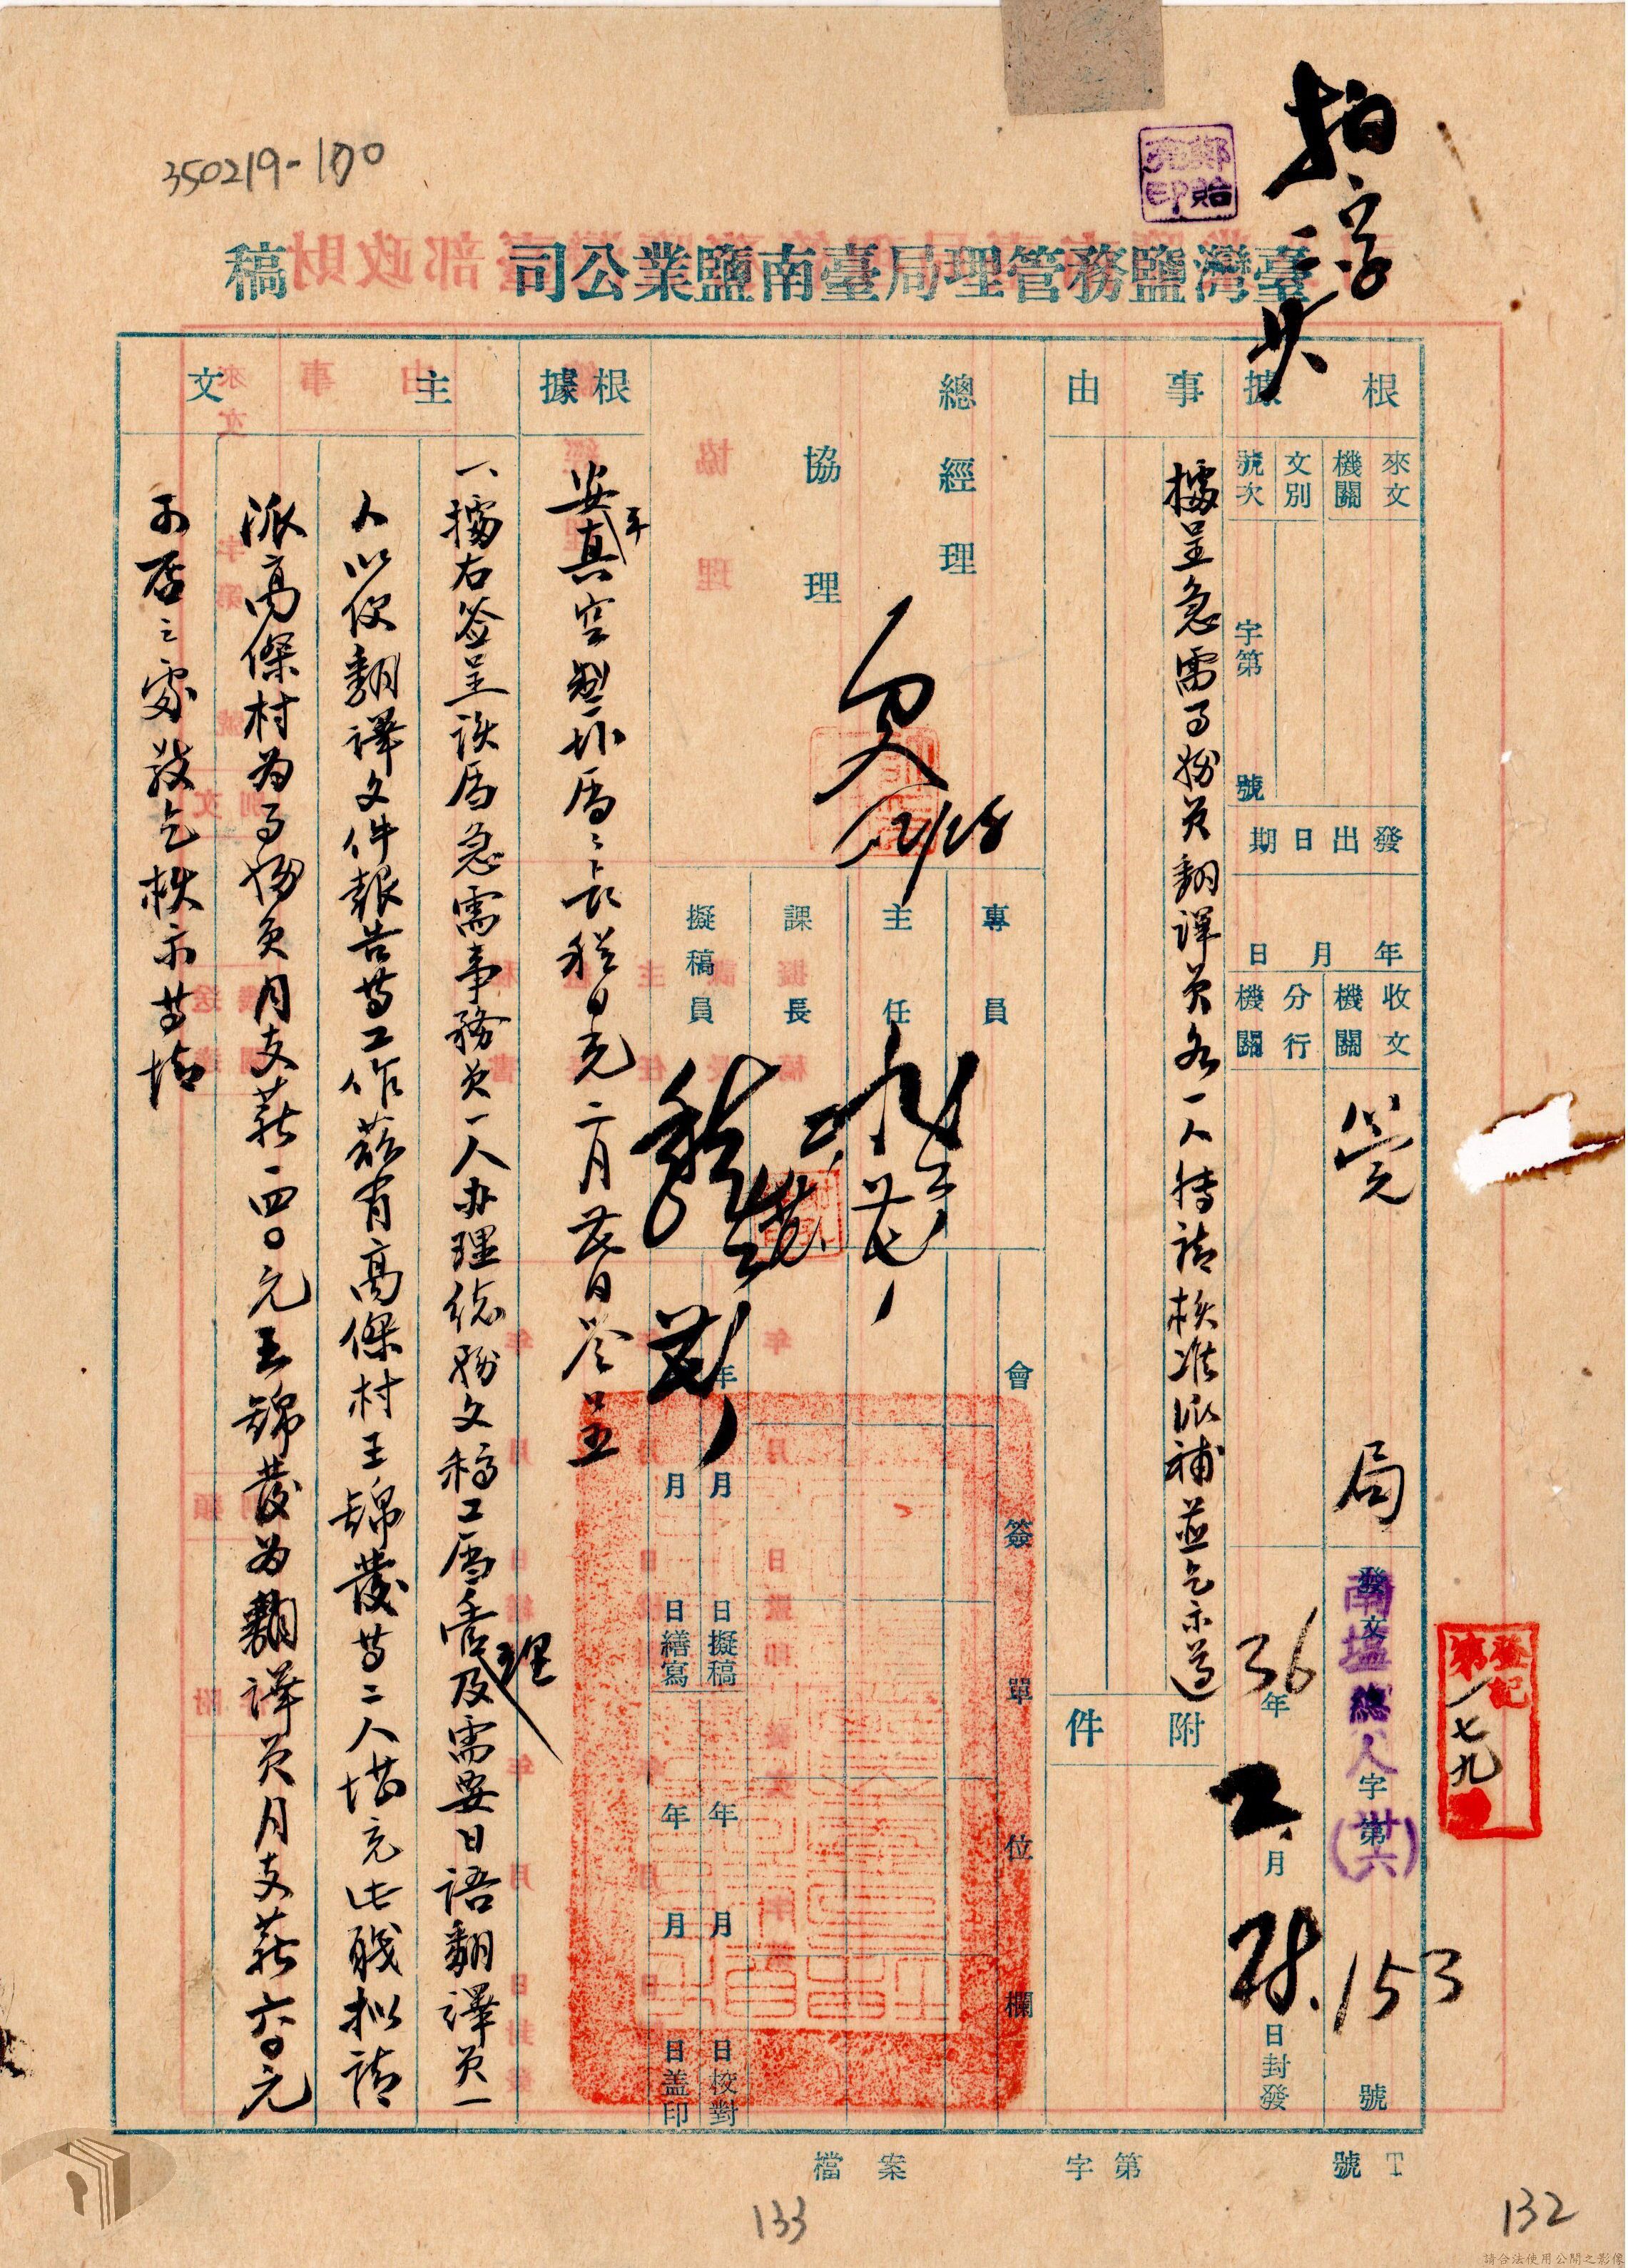 350219-100
臺灣鹽務管理局臺南鹽業公司 稿
根據
來文機關
文別
號次 字第 號
發出日期 年 月 日
收文機關 管 局
分行機關
發文 南塩總人字第(廿六)153號
36年2月28日封發
登記第一七九
事由
據呈急需事務員翻譯員各一人特請核准派補並乞示遵
附件
總經理
協理
專員
主任
課長
擬稿員
會簽單位欄
年 月 日擬稿
年 月 日校對
月 日繕寫
年 月 日蓋印
根據
安平真空製盐厂厂長程日光二月廿日簽呈
主文
一、據右簽呈該厂急需事務員一人办理總務文稿工厂管理及需要日語翻譯員一
人以便翻譯文件報告等工作茲有高傑村王錦發等二人堪充此職擬請
派高傑村為事務員月支薪一四〇元王錦發為翻譯員月支薪六〇元
可否之處敬乞核示等情
檔案 字第 號
133
132
請合法使用公開之影像